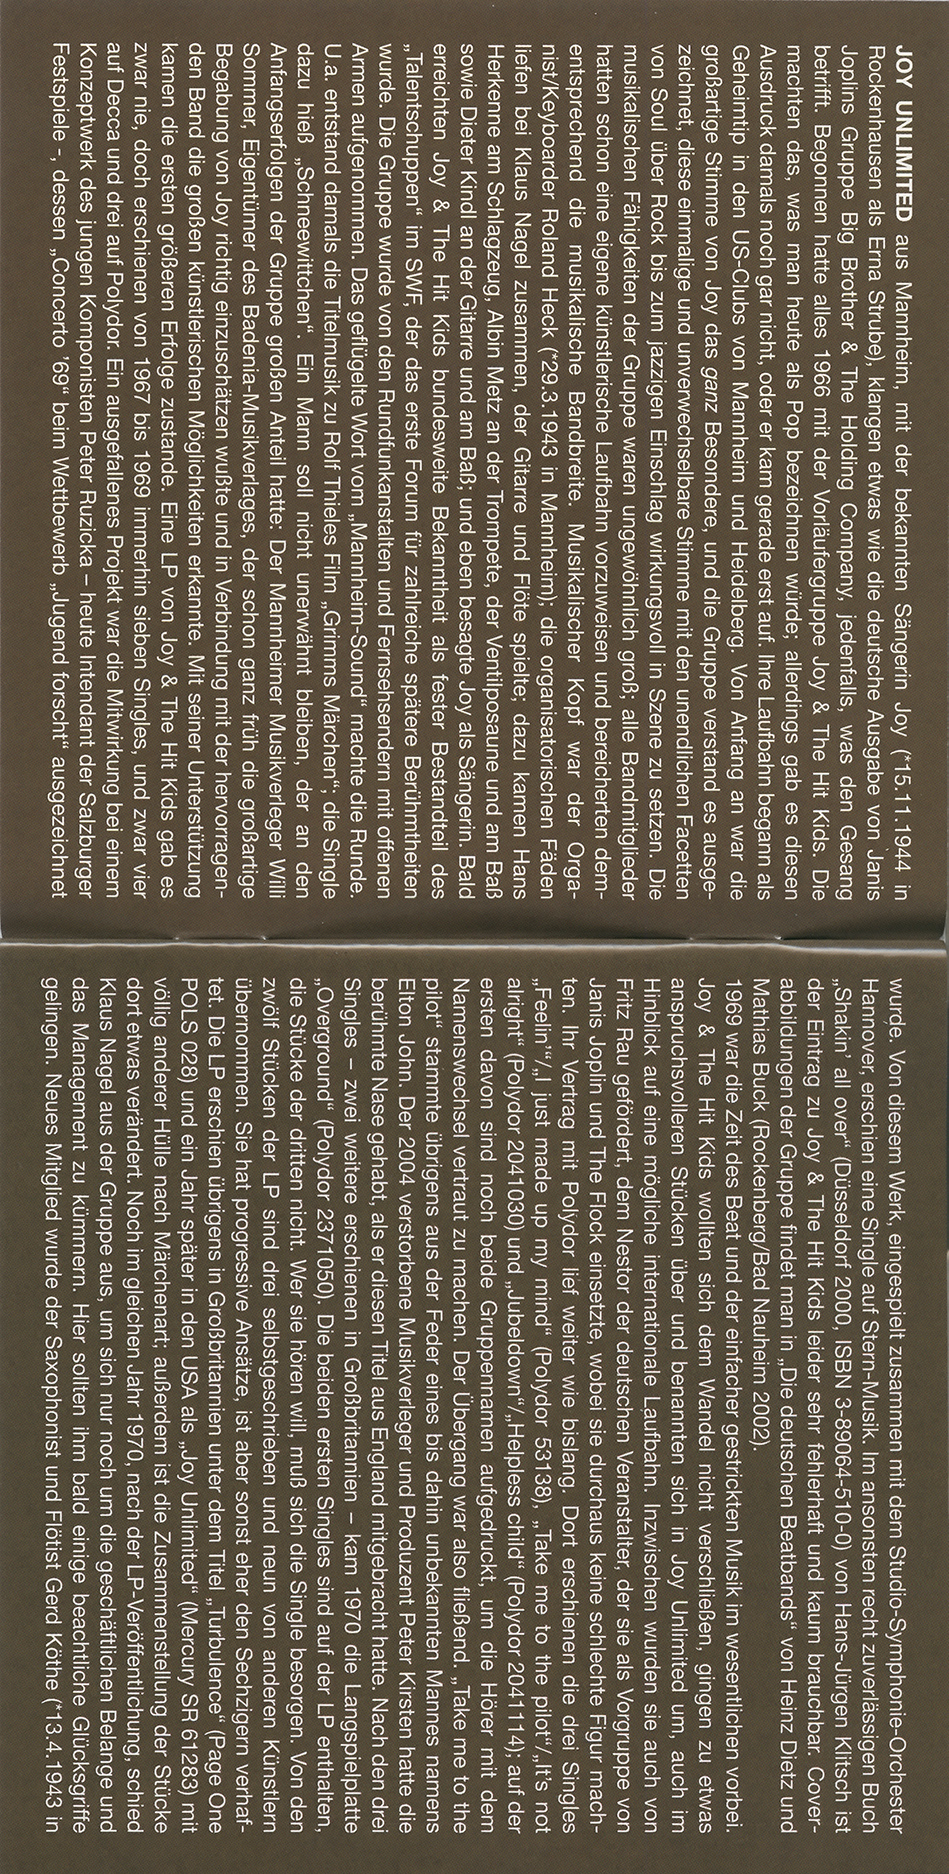 JOY UNLIMITED aus Mannheim, mit der bekannten Sängerin Joy (*15.11.1944 in
Rockenhausen als Erna Strube), klangen etwas wie die deutsche Ausgabe von Janis
Joplins Gruppe Big Brother & The Holding Company, jedenfalls, was den Gesang
betrifft. Begonnen hatte alles 1966 mit der Vorläufergruppe Joy & The Hit Kids. Die
machten das, was man heute als Pop bezeichnen würde; allerdings gab es diesen
Ausdruck damals noch gar nicht, oder er kam gerade erst auf. Ihre Laufbahn begann als
Geheimtip in den US-Clubs von Mannheim und Heidelberg. Von Anfang an war die
großartige Stimme von Joy das ganz Besondere, und die Gruppe verstand es ausge-
zeichnet, diese einmalige und unverwechselbare Stimme mit den unendlichen Facetten
von Soul über Rock bis zum jazzigen Einschlag wirkungsvoll in Szene zu setzen. Die
musikalischen Fähigkeiten der Gruppe waren ungewöhnlich groß; alle Bandmitglieder
hatten schon eine eigene künstlerische Laufbahn vorzuweisen und bereicherten dem-
entsprechend die musikalische Bandbreite. Musikalischer Kopf war der Orga-
nist/Keyboarder Roland Heck (*29.3.1943 in Mannheim); die organisatorischen Fäden
liefen bei Klaus Nagel zusammen, der Gitarre und Flöte spielte; dazu kamen Hans
Herkenne am Schlagzeug, Albin Metz an der Trompete, der Ventilposaune und am Baß
sowie Dieter Kindl an der Gitarre und am Baß; und eben besagte Joy als Sängerin. Bald
erreichten Joy & The Hit Kids bundesweite Bekanntheit als fester Bestandteil des
„Talentschuppen“ im SWF, der das erste Forum für zahlreiche spätere Berühmtheiten
wurde. Die Gruppe wurde von den Rundfunkanstalten und Fernsehsendern mit offenen
Armen aufgenommen. Das geflügelte Wort vom „Mannheim-Sound“ machte die Runde.
U.a. entstand damals die Titelmusik zu Rolf Thieles Film „Grimms Märchen“; die Single
dazu hieß „Schneewittchen“. Ein Mann soll nicht unerwähnt bleiben, der an den
Anfangserfolgen der Gruppe großen Anteil hatte: Der Mannheimer Musikverleger Willi
Sommer, Eigentümer des Bademia-Musikverlages, der schon ganz früh die großartige
Begabung von Joy richtig einzuschätzen wußte und in Verbindung mit der hervorragen-
den Band die großen künstlerischen Möglichkeiten erkannte. Mit seiner Unterstützung
kamen die ersten größeren Erfolge zustande. Eine LP von Joy & The Hit Kids gab es
zwar nie, doch erschienen von 1967 bis 1969 immerhin sieben Singles, und zwar vier
auf Decca und drei auf Polydor. Ein ausgefallenes Projekt war die Mitwirkung bei einem
Konzeptwerk des jungen Komponisten Peter Ruzicka – heute Intendant der Salzburger
Festspiele -, dessen „Concerto ’69“ beim Wettbewerb „Jugend forscht“ ausgezeichnet
wurde. Von diesem Werk, eingespielt zusammen mit dem Studio-Symphonie-Orchester
Hannover, erschien eine Single auf Stern-Musik. Im ansonsten recht zuverlässigen Buch
„Shakin’ all over“ (Düsseldorf 2000, ISBN 3-89064-510-0) von Hans-Jürgen Klitsch ist
der Eintrag zu Joy & The Hit Kids leider sehr fehlerhaft und kaum brauchbar. Cover-
abbildungen der Gruppe findet man in „Die deutschen Beatbands“ von Heinz Dietz und
Matthias Buck (Rockenberg/Bad Nauheim 2002).
1969 war die Zeit des Beat und der einfacher gestrickten Musik im wesentlichen vorbei.
Joy & The Hit Kids wollten sich dem Wandel nicht verschließen, gingen zu etwas
anspruchsvolleren Stücken über und benannten sich in Joy Unlimited um, auch im
Hinblick auf eine mögliche internationale Laufbahn. Inzwischen wurden sie auch von
Fritz Rau gefördert, dem Nestor der deutschen Veranstalter, der sie als Vorgruppe von
Janis Joplin und The Flock einsetzte, wobei sie durchaus keine schlechte Figur mach-
ten. Ihr Vertrag mit Polydor lief weiter wie bislang. Dort erschienen die drei Singles
„Feelin’“/„I just made up my mind“ (Polydor 53138), „Take me to the pilot“/„It’s not
alright“ (Polydor 2041030) und „Jubeldown“/„Helpless child“ (Polydor 2041114); auf der
ersten davon sind noch beide Gruppennamen aufgedruckt, um die Hörer mit dem
Namenswechsel vertraut zu machen. Der Übergang war also fließend. „Take me to the
pilot“ stammte übrigens aus der Feder eines bis dahin unbekannten Mannes namens
Elton John. Der 2004 verstorbene Musikverleger und Produzent Peter Kirsten hatte die
berühmte Nase gehabt, als er diesen Titel aus England mitgebracht hatte. Nach den drei
Singles – zwei weitere erschienen in Großbritannien – kam 1970 die Langspielplatte
„Overground“ (Polydor 2371050). Die beiden ersten Singles sind auf der LP enthalten,
die Stücke der dritten nicht. Wer sie hören will, muß sich die Single besorgen. Von den
zwölf Stücken der LP sind drei selbstgeschrieben und neun von anderen Künstlern
übernommen. Sie hat progressive Ansätze, ist aber sonst eher den Sechzigern verhaf-
tet. Die LP erschien übrigens in Großbritannien unter dem Titel „Turbulence“ (Page One
POLS 028) und ein Jahr später in den USA als „Joy Unlimited“ (Mercury SR 61283) mit
völlig anderer Hülle nach Märchenart; außerdem ist die Zusammenstellung der Stücke
dort etwas verändert. Noch im gleichen Jahr 1970, nach der LP-Veröffentlichung, schied
Klaus Nagel aus der Gruppe aus, um sich nur noch um die geschäftlichen Belange und
das Management zu kümmern. Hier sollten ihm bald einige beachtliche Glücksgriffe
gelingen. Neues Mitglied wurde der Saxophonist und Flötist Gerd Köthe (*13.4.1943 in